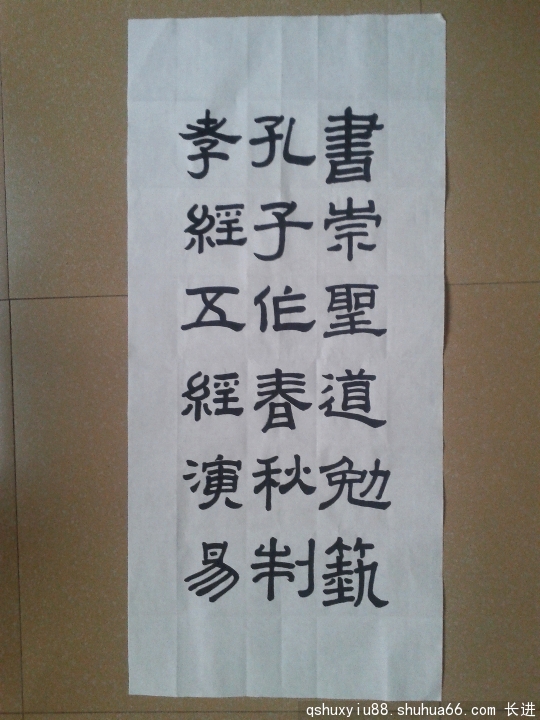 書崇聖道勉蓺
孔子作春秋制
孝經五經演易
qshuxyiu88.shuhua66.com 长进